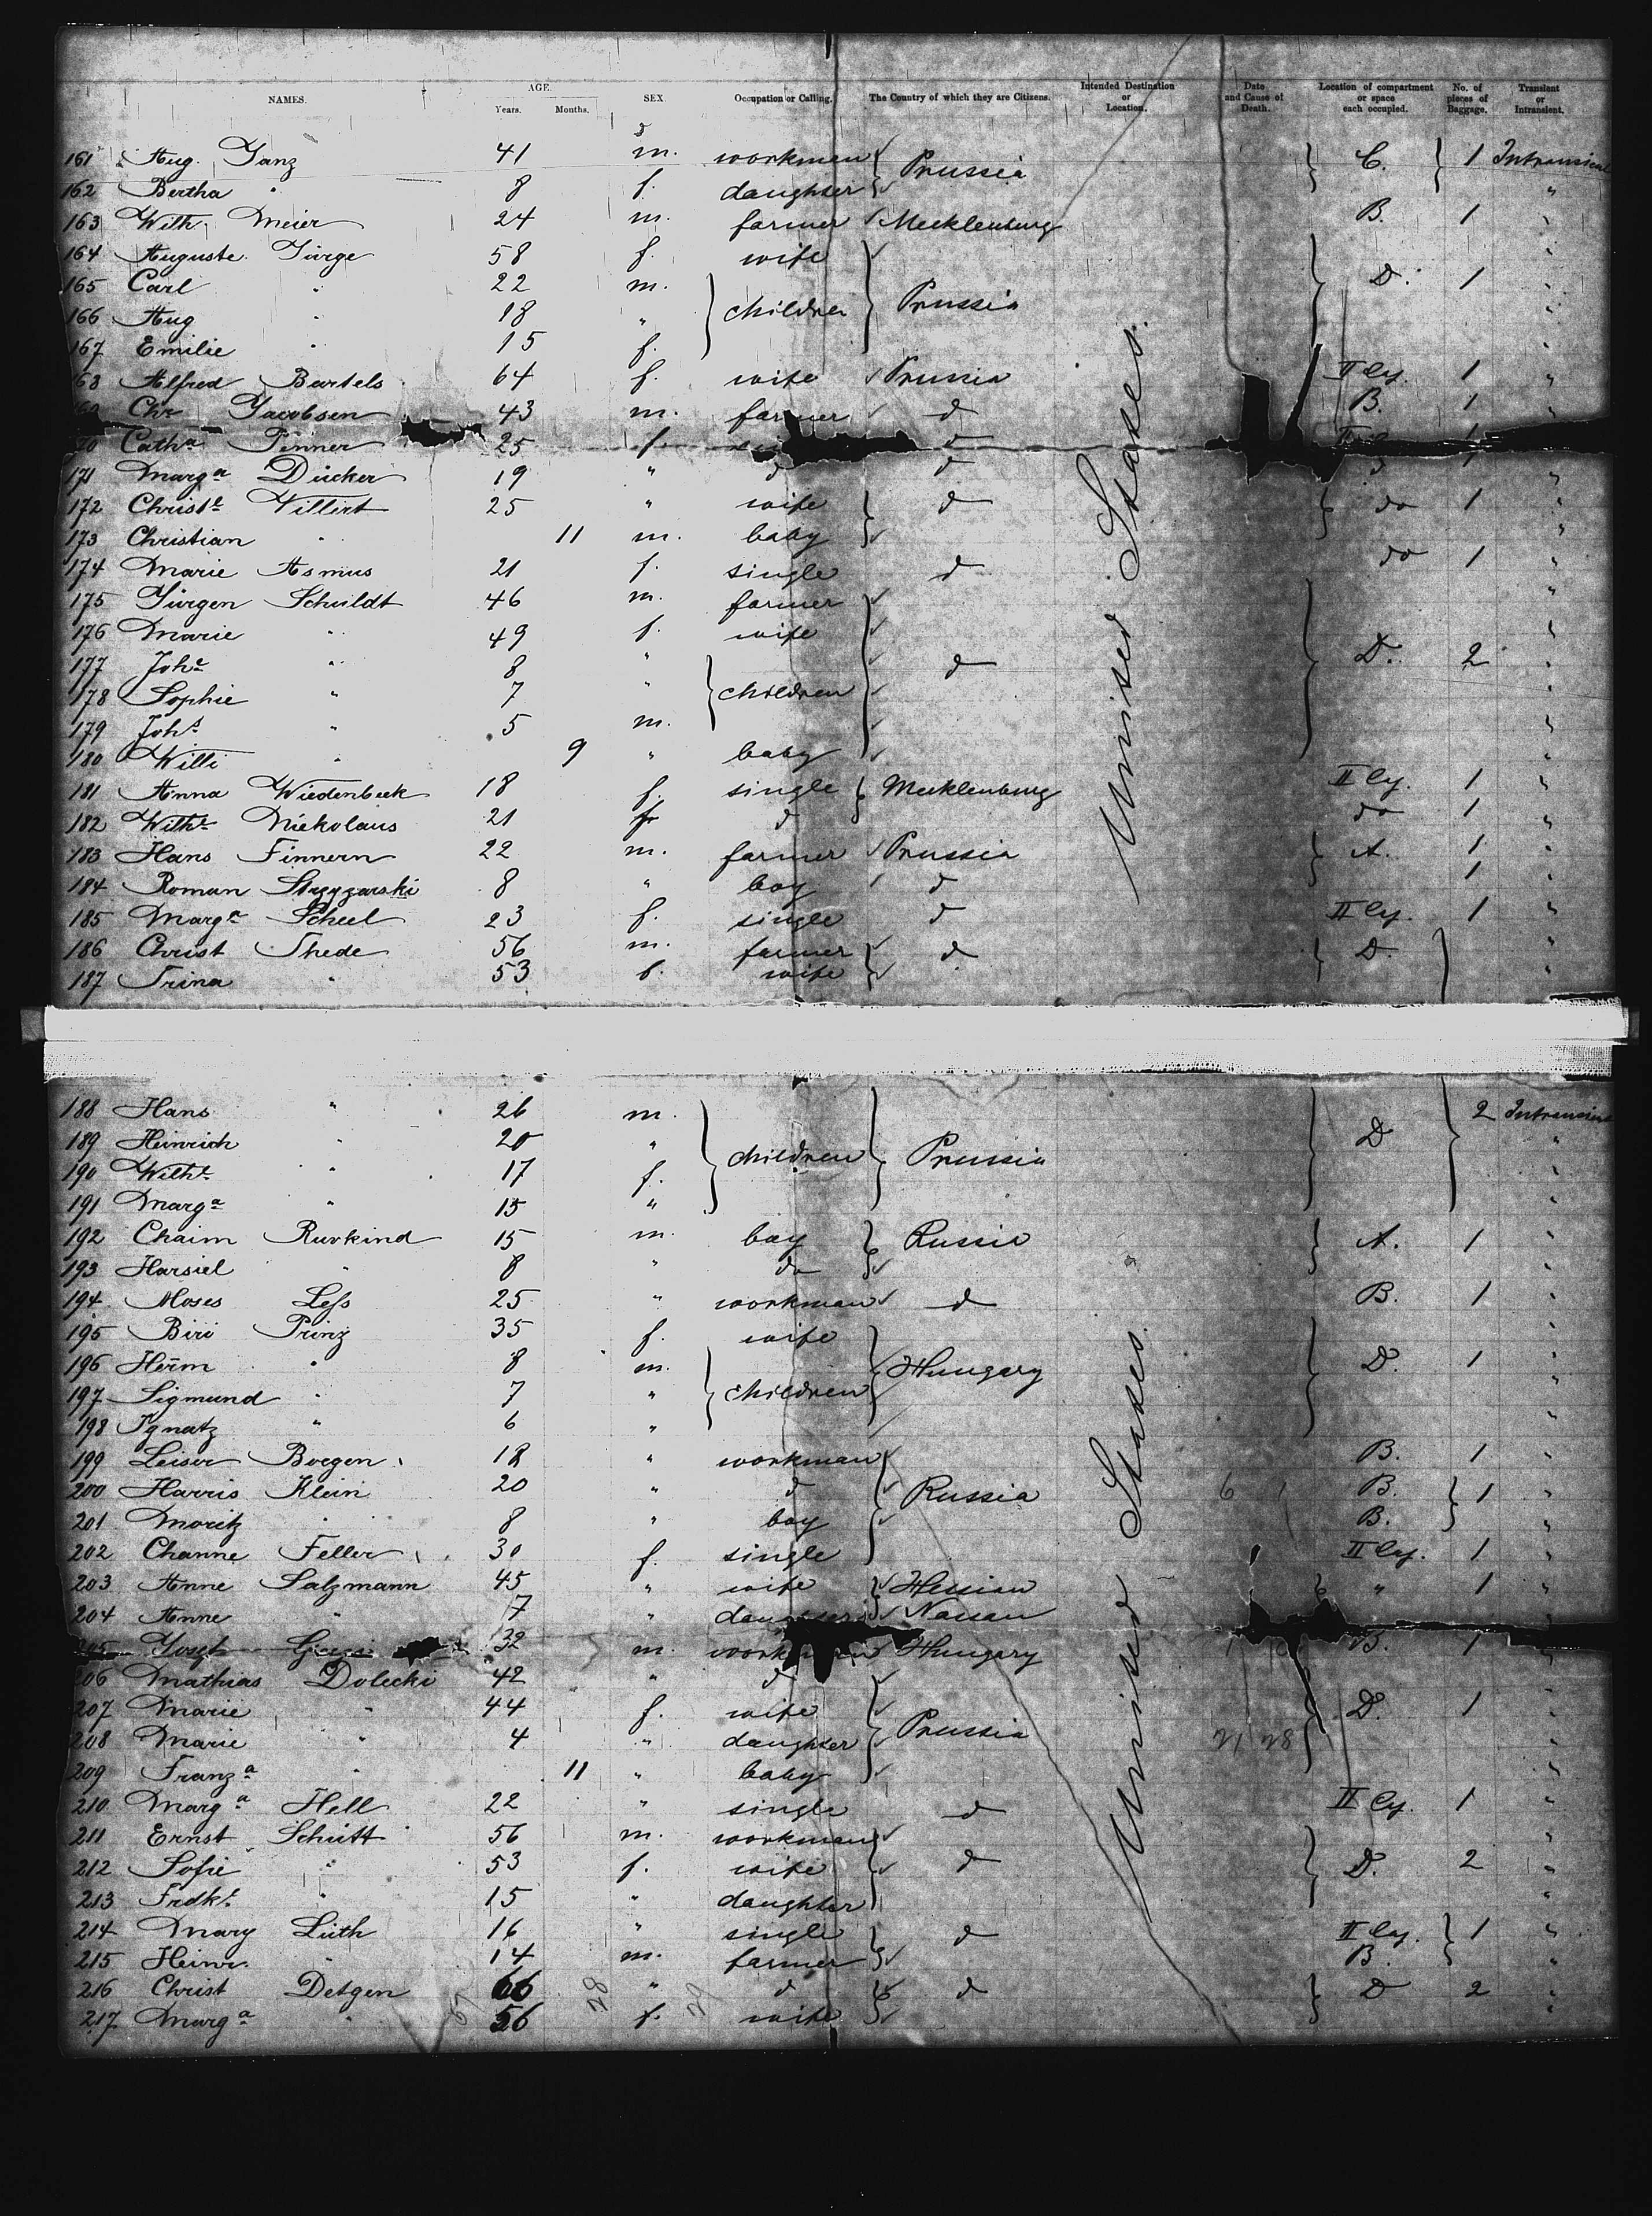 NAMES. AGE. Years. Months. SEX. Occupation or Calling. The Country of which they are Citizens. Intended Destination or Location. Date and Cause of Death. Location of compartment or space each occupied. No. of pieces of Baggage. Transient or Intransient.
161 Aug. Ganz 41 m. workman Prussia C. 1 Intransient
162 Bertha " 8 f. daughter "
163 Wilh. Meier 24 m. farmer Mecklenburg B. 1 "
164 Auguste Jürge 58 f. wife "
165 Carl " 22 m. children Prussia D. 1 "
166 Aug " 18 " "
167 Emilie " 15 f. "
168 Alfred Bartels 64 f. wife Prussia II Cy. 1 "
169 Chr Jacobsen 43 m. farmer d B. 1 "
170 Cath.a Pinner 25 f. d 1
171 Marg.a Dücker 19 " d d 1 "
172 Christ.e Villirt 25 " wife d do 1 "
173 Christian " 11 m. baby "
174 Marie Asmus 21 f. single d do 1 "
175 Jürgen Schuldt 46 m. farmer "
176 Marie " 49 f. wife "
177 Joh.e " 8 " children d D. 2 "
178 Sophie " 7 " "
179 Joh.s " 5 m. "
180 Willi " 9 " baby "
181 Anna Wiedenbeck 18 f. single Mecklenburg II Cy. 1 "
182 Wilh.e Niekolaus 21 f d do 1 "
183 Hans Finnern 22 m. farmer Prussia A. 1 "
184 Roman 8 " boy d 1 "
185 Marg.a Scheel 23 f. single d II Cy. 1 "
186 Christ Thede 56 m. farmer d D. "
187 Trina " 53 f. wife "
United States.
188 Hans " 26 m. children Prussia D 2 Intransient
189 Heinrich " 20 " "
190 Wilh.e " 17 f. "
191 Marg.a " 15 " "
192 Chaim Ruvkind 15 m. boy Russia A. 1 "
193 Harsiel " 8 " do "
194 Moses Less 25 " workman d B. 1 "
195 Biri Prinz 35 f. wife "
196 Herm " 8 m. children Hungary D. 1 "
197 Sigmund " 7 " "
198 Ignatz " 6 " "
199 Leiser Borgen 18 " workman B. 1 "
200 Harris Klein 20 " d Russia B. 1 "
201 Moritz " 8 " boy B. "
202 Channe Feller 30 f. single II Cy. 1 "
203 Anne Salzmann 45 " wife Hessian " 1 "
204 Anne " 7 " daughter Nassau "
205 Josef 32 m. workman Hungary B. 1 "
206 Mathias Dolecki 42 " d "
207 Marie " 44 f. wife Prussia D. 1 "
208 Marie " 4 " daughter "
209 Franz.a " 11 " baby "
210 Marg.a Hell 22 " single d II Cy. 1 "
211 Ernst Schütt 56 m. workman "
212 Sofie " 53 f. wife d D. 2 "
213 Frdk.e " 15 " daughter "
214 Mary Lüth 16 " single d II Cy. 1 "
215 Heinr. " 14 m. farmer B. "
216 Christ Detgen 66 " d d D 2 "
217 Marg.a " 56 f. wife "
United States.